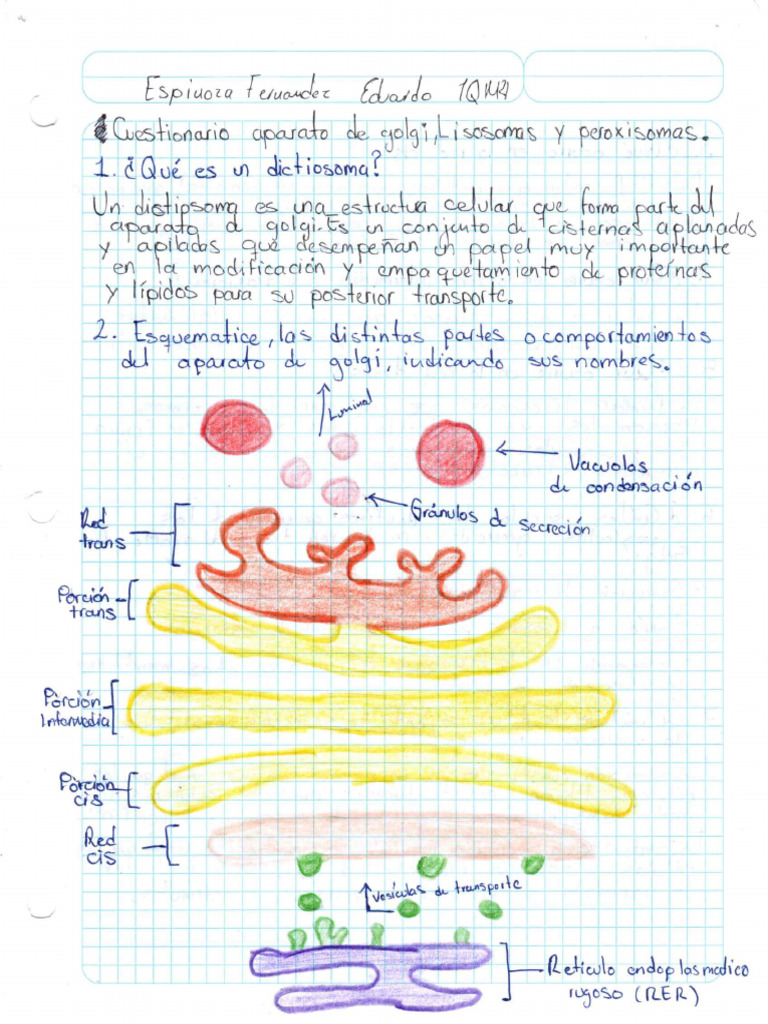 Espinoza Fernandez Eduardo 1QM2
Cuestionario aparato de golgi, Lisosomas y peroxisomas.
1. ¿Qué es un dictiosoma?
Un distipsoma es una estructua celular que forma parte del
aparato d golgi. Es un conjunto de cisternas aplanadas
y apilados que desempeñan un papel muy importante
en la modificación y empaquetamiento de proteínas
y lípidos para su posterior transporte.
2. Esquematice, las distintas partes o comportamientos
del aparato de golgi, indicando sus nombres.
Luminal
Vacuolas
de condensación
Gránulos d secreción
Red
trans
Porción
trans
Porción
Intermedia
Porción
cis
Red
cis
Vesículas de transporte
Reticulo endoplasmatico
rugoso (RER)